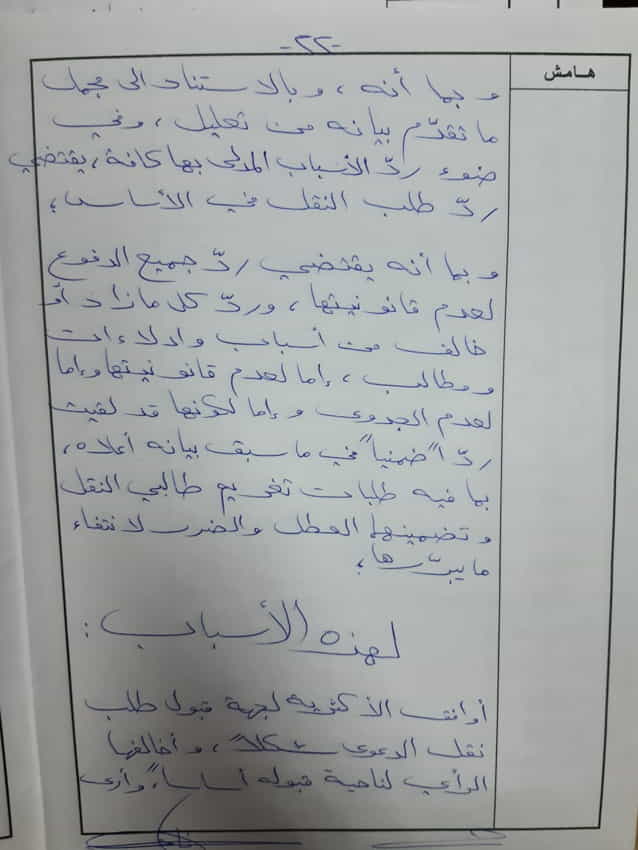 -٢٢-
هـامش
و بما أنه ، و بالاستناد الى مجمل
ما تقدّم بيانه من تعليل ، وفي
ضوء ردّ الأسباب المدلى بها كافة ، يقتضي
ردّ طلب النقل في الأساس ؛
و بما أنه يقتضي ردّ جميع الدفوع
لعدم قانونيتها ، وردّ كل ما زاد أو
خالف من أسباب وادلاءات
ومطالب ، إما لعدم قانونيتها وإما
لعدم الجدوى وإما لكونها قد لقيت
ردّاً ضمنياً في ما سبق بيانه أعلاه ،
بما فيه طلبات تغريم طالبي النقل
وتضمينهما العطل والضرر لانتفاء
ما يبرّرها ؛
لهذه الأسباب :
أوافق الأكثرية لجهة قبول طلب
نقل الدعوى شكلاً ، وأخالفها
الرأي لناحية قبوله أساساً ، وأرى